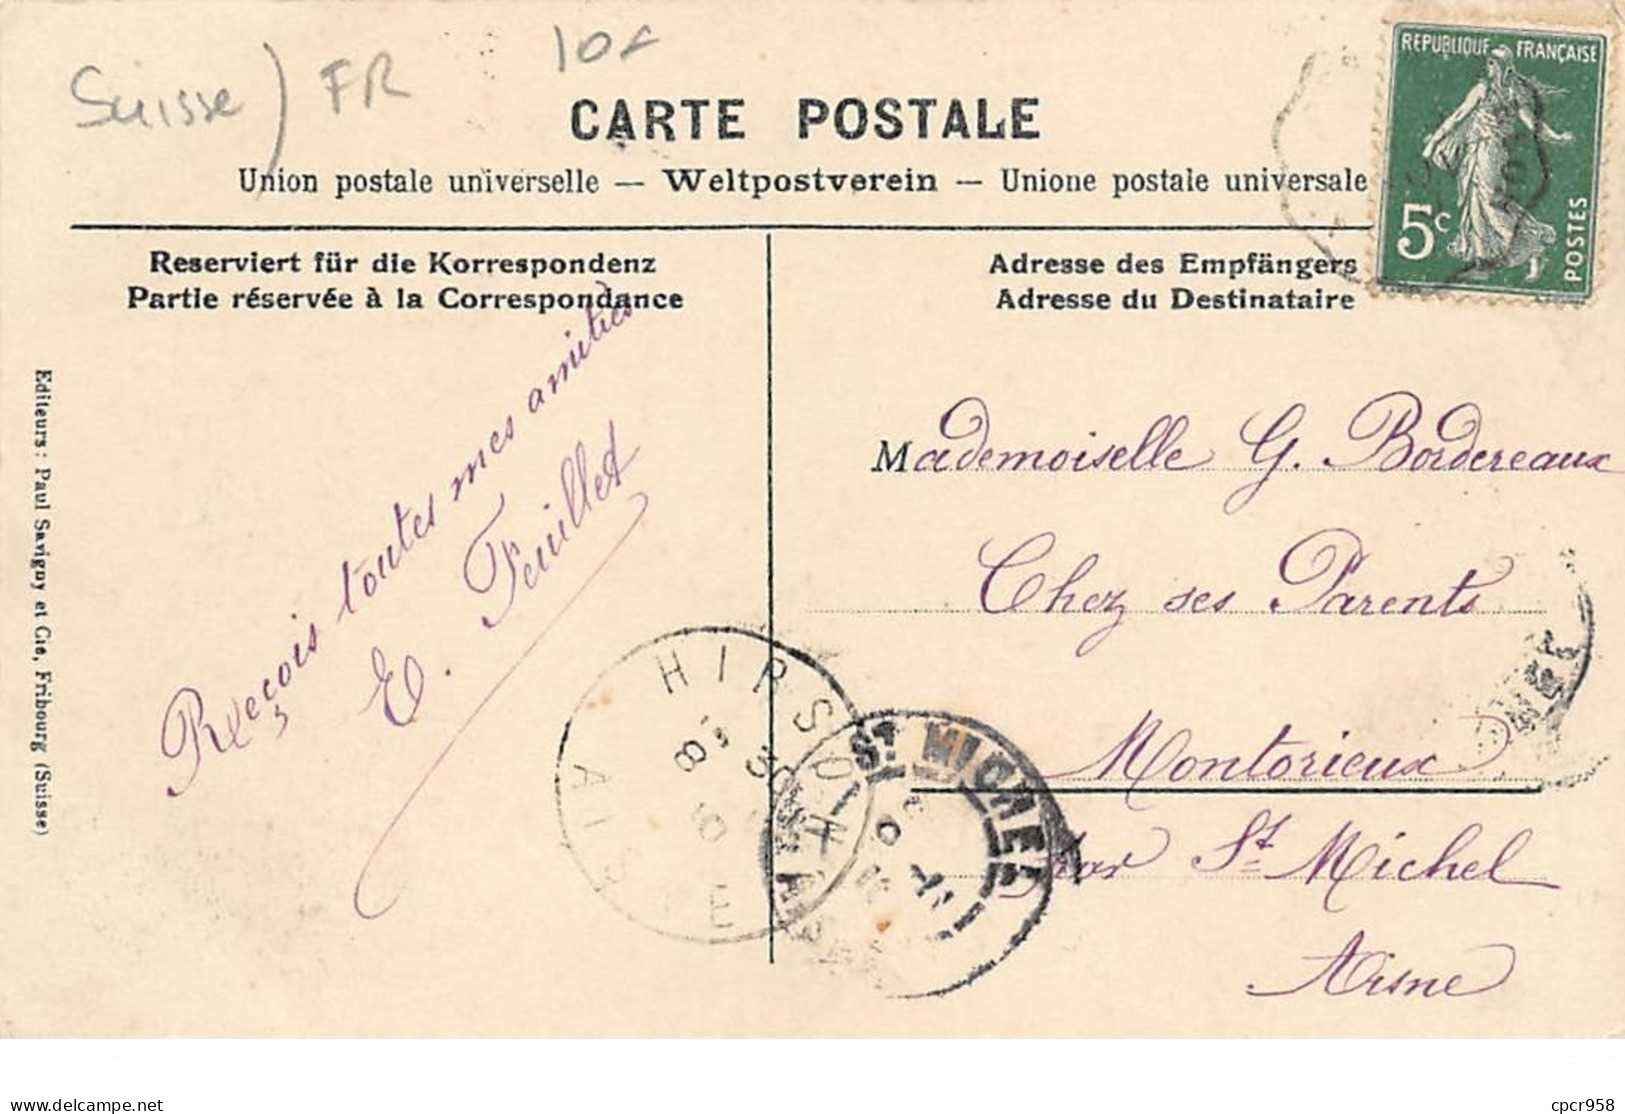 Suisse) FR 10€
CARTE POSTALE
Union postale universelle — Weltpostverein — Unione postale universale
RÉPUBLIQUE FRANÇAISE
5c
POSTES
Reserviert für die Korrespondenz
Partie réservée à la Correspondance
Adresse des Empfängers
Adresse du Destinataire
Editeurs: Paul Savigny et Cie, Fribourg (Suisse)
Reçois toutes mes amitiés
E. Feuillet
Mademoiselle G. Bordereaux
Chez ses Parents
Montorieux
par St Michel
Aisne
HIRSON
AISNE
ST MICHEL
delcampe.net
cpcr958